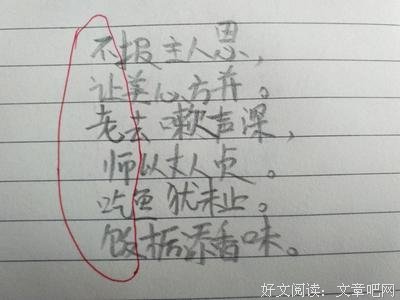 不报主人恩，
让美心方并。
老去嗽声深，
师以丈人贞。
吃鱼犹未止。
饭栃添香味。
好文阅读：文章吧网